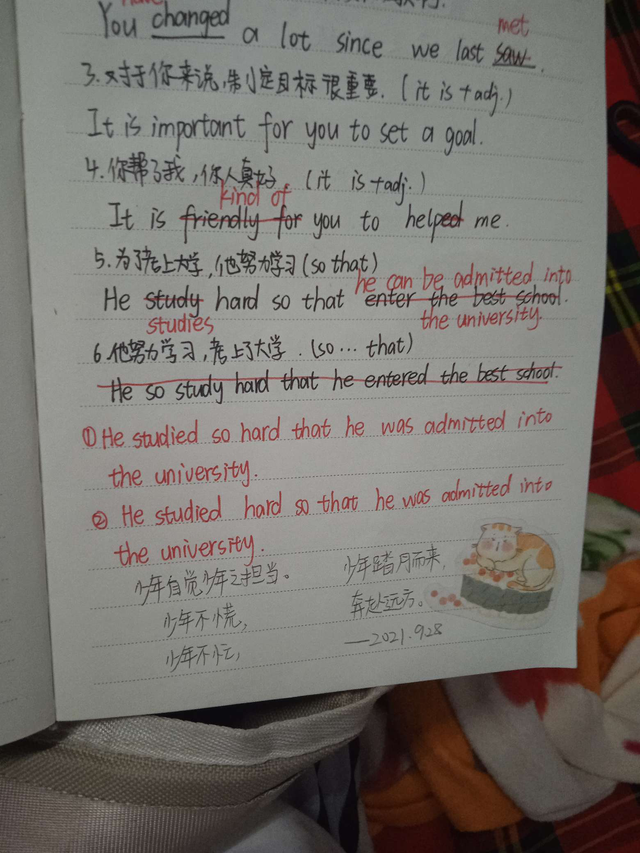 have
You changed a lot since we last saw.
met
3.对于你来说,制定目标很重要.(it is +adj.)
It is important for you to set a goal.
4.你帮了我,你人真好.(it is +adj.)
kind of
It is friendly for you to helped me.
5.为了考上大学,他努力学习(so that)
he can be admitted into
He study hard so that enter the best school.
studies
the university.
6.他努力学习,考上了大学.(so...that)
He so study hard that he entered the best school.
①He studied so hard that he was admitted into
the university.
② He studied hard so that he was admitted into
the university.
少年自觉少年之担当。
少年不慌,
少年不忙,
少年踏月而来,
奔赴远方。
—2021.9.28